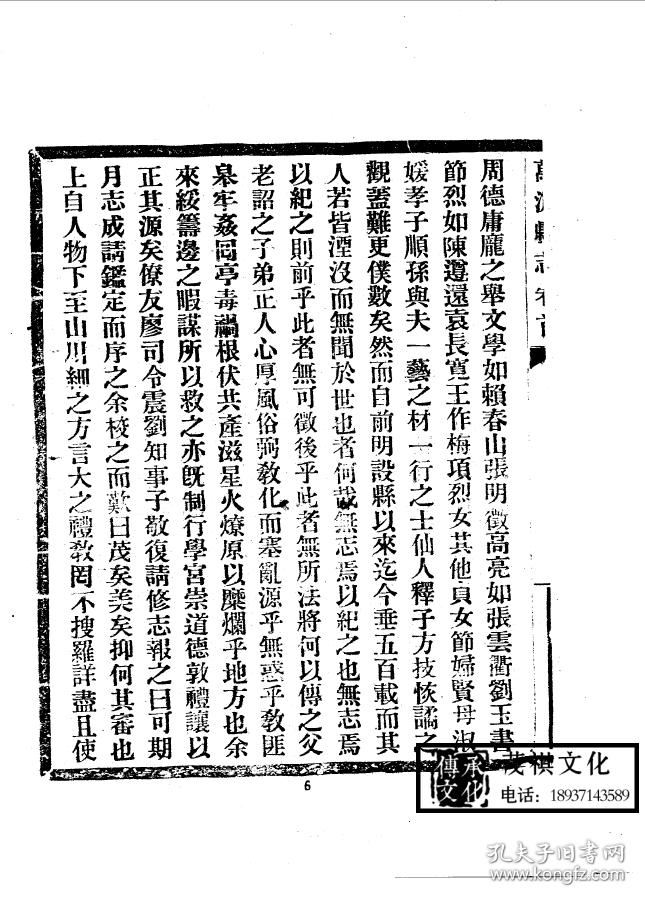 萬源縣志卷首
周德庸龐之舉文學如賴春山張明徵高亮如張雲衢劉玉書
節烈如陳遵還袁長寬王作梅項烈女其他貞女節婦賢母淑
媛孝子順孫與夫一藝之材一行之士仙人釋子方技恢譎之
觀蓋難更僕數矣然而自前明設縣以來迄今垂五百載而其
人若皆湮沒而無聞於世也者何哉無志焉以紀之也無志焉
以紀之則前乎此者無可徵後乎此者無所法將何以傳之父
老詔之子弟正人心厚風俗弼敎化而塞亂源乎無惑乎敎匪
皋牢姦宄亭毒禍根伏共產滋星火燎原以糜爛乎地方也余
來綏籌邊之暇謀所以救之亦旣制行學宮崇道德敦禮讓以
正其源矣僚友廖司令震劉知事子敬復請修志報之曰可期
月志成請鑑定而序之余校之而歎曰茂矣美矣抑何其審也
上自人物下至山川細之方言大之禮敎罔不搜羅詳盡且使
6
傳承文化
茂祺文化
电话：18937143589
孔夫子旧书网
www.kongfz.com